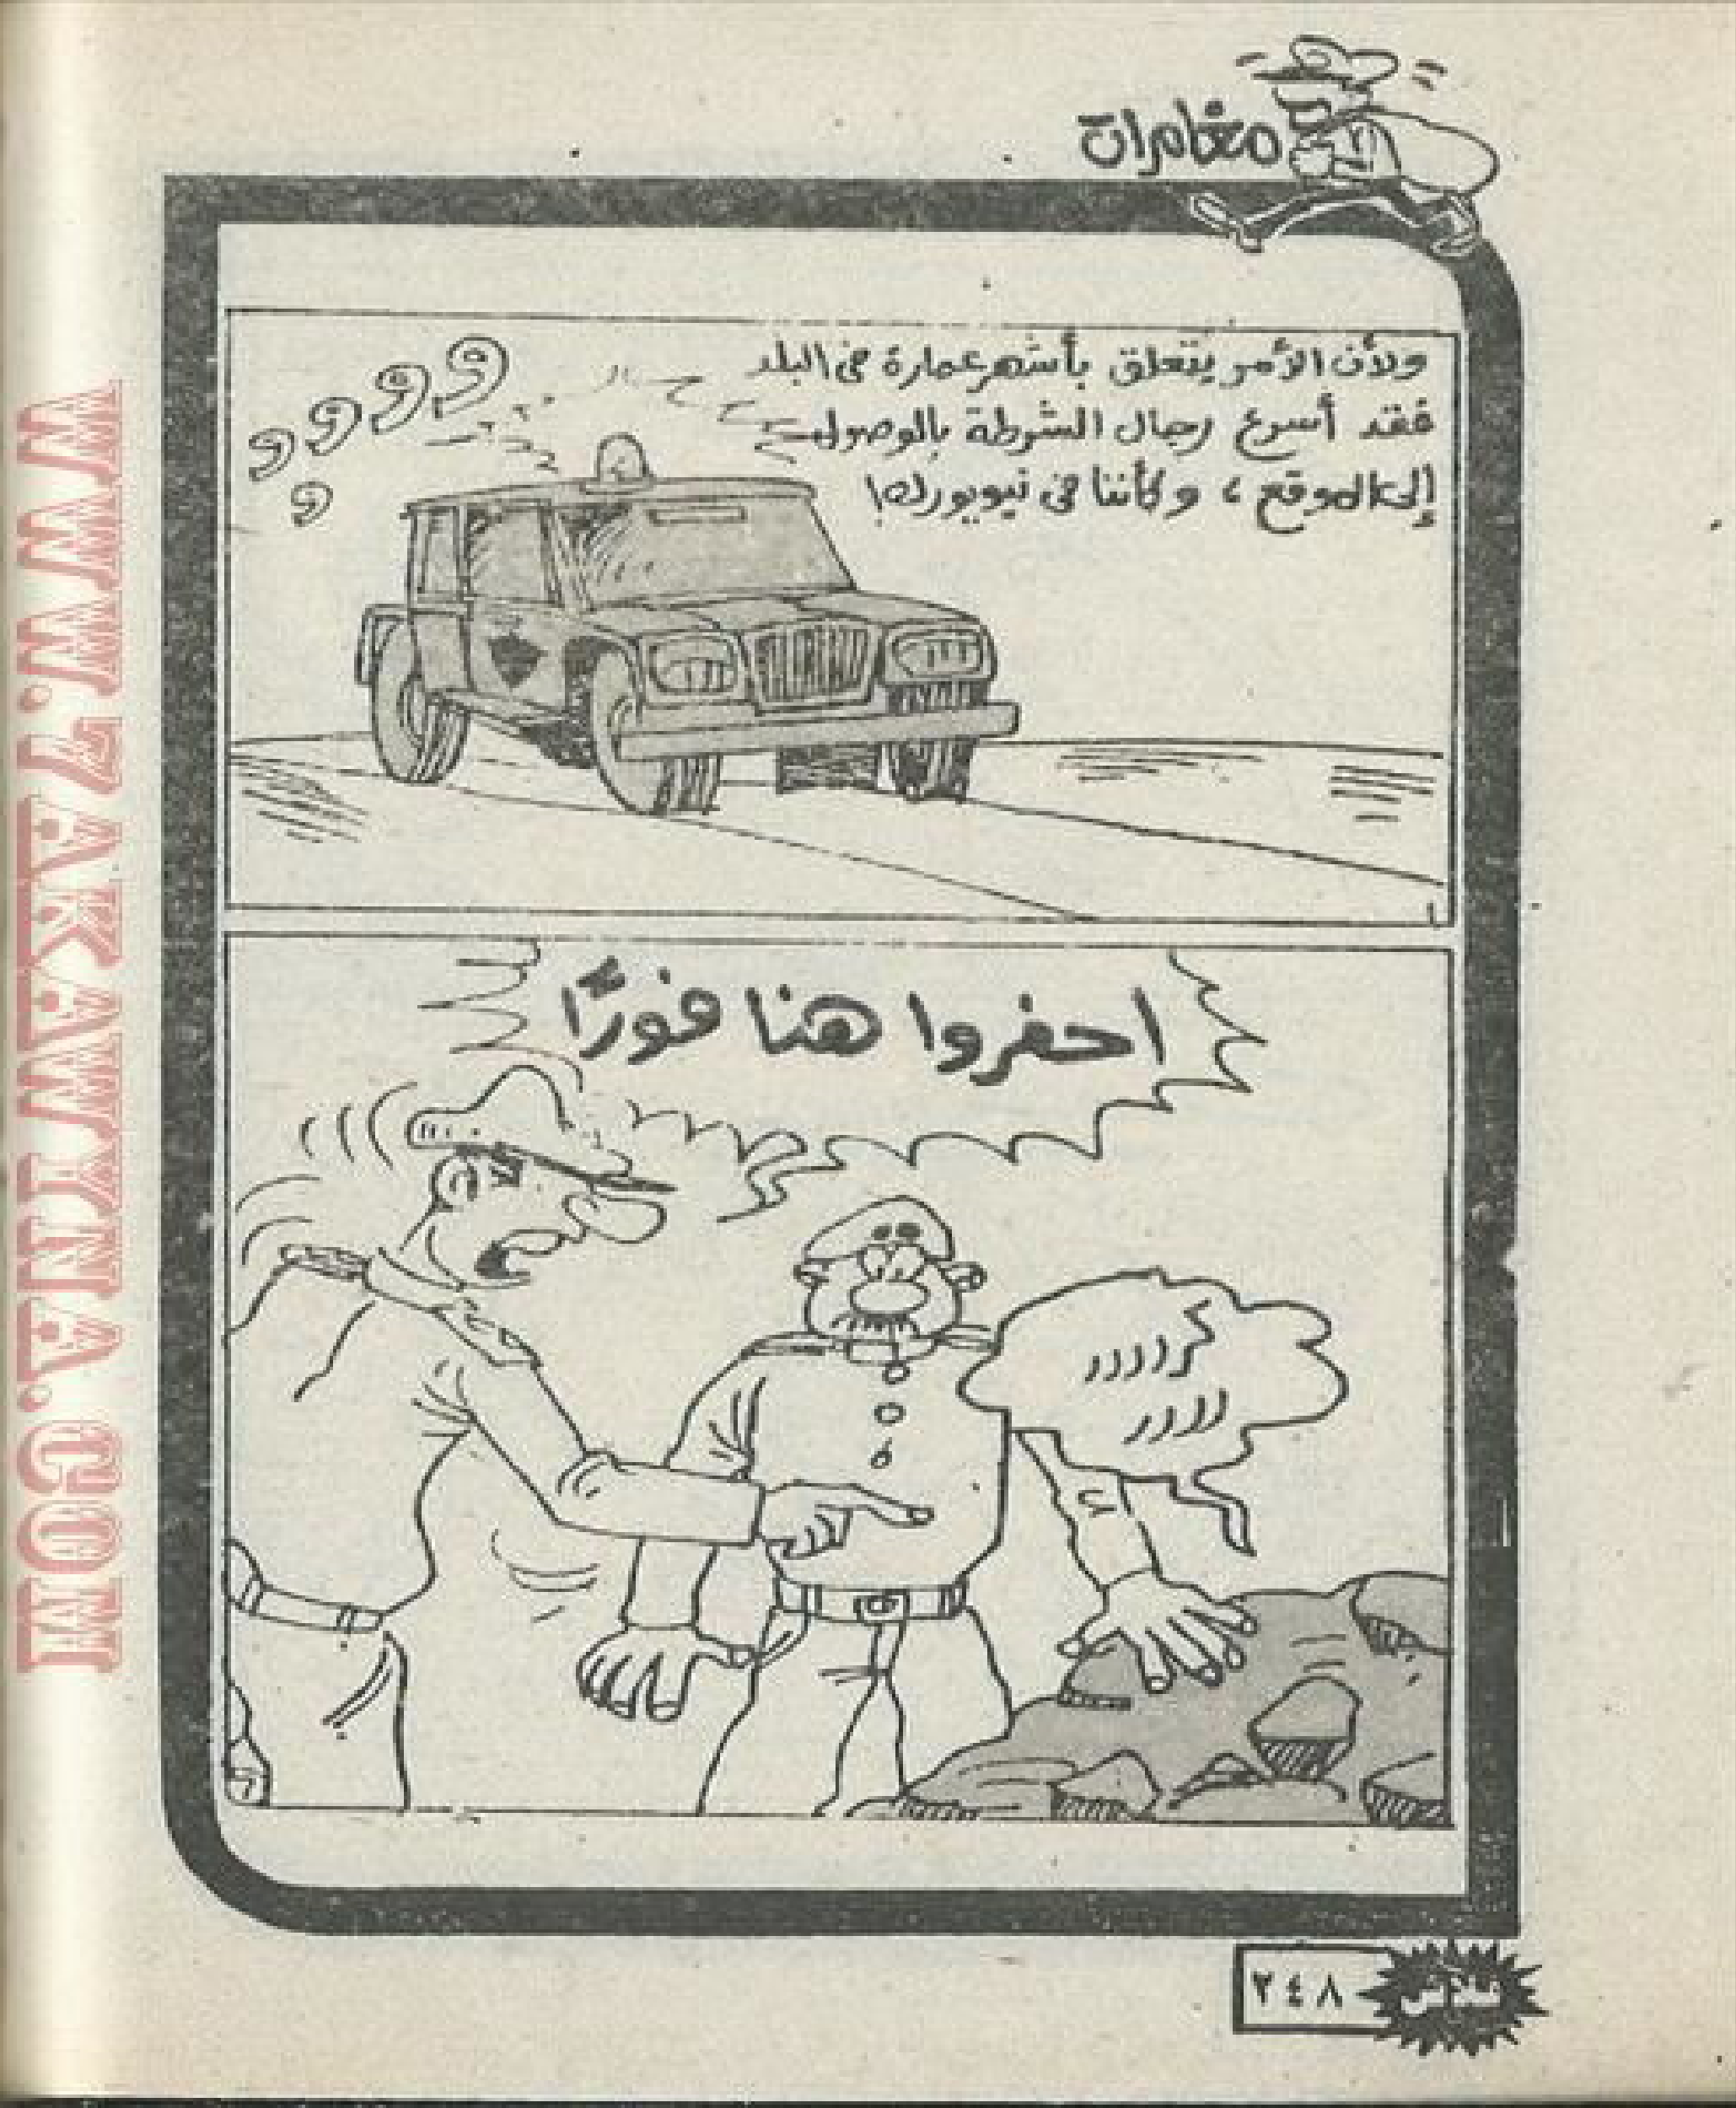 مغامرات
ولأن الأمر يتعلق بأشهر عمارة فى البلد
فقد أسرع رجال الشرطة بالوصول
إلى الموقع ، وكأننا فى نيويورك!
و و و و و
احفروا هنا فورًا
كررررر
رررر
٢٤٨
فلاش
WWW.7AKAWTNA.COM